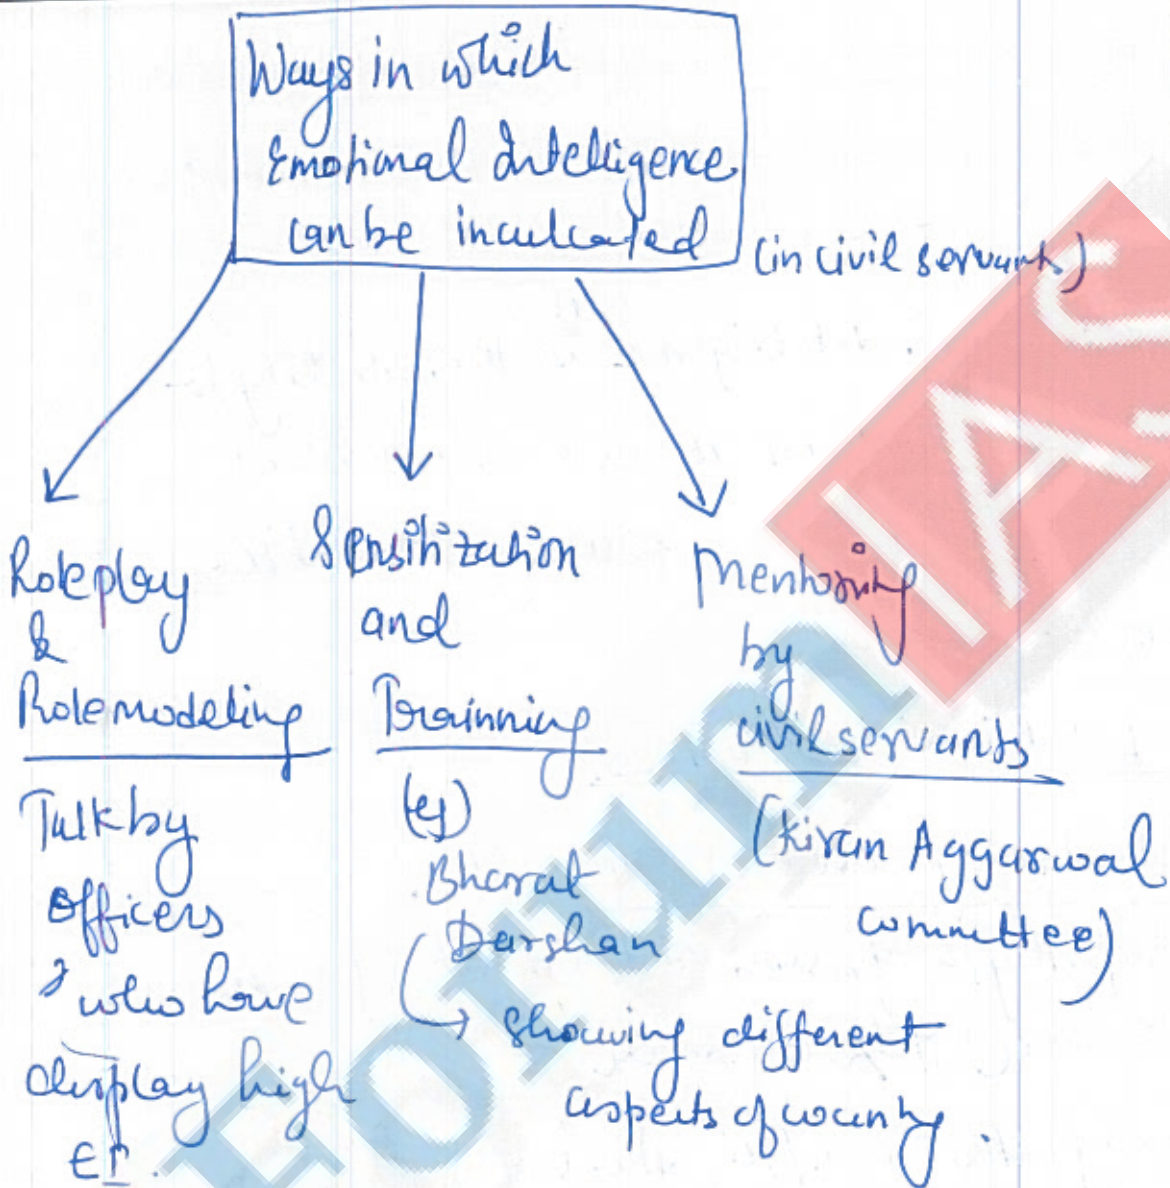 Ways in which
Emotional Intelligence
can be inculcated
(in civil servants)
Roleplay
&
Rolemodeling
Talk by
officers
who have
display high
EI.
Sensitization
and
Trainning
(eg)
Bharat
Darshan
showing different
aspects of country.
Mentoring
by
civil servants
(Kiran Aggarwal
committee)
Forum IAS